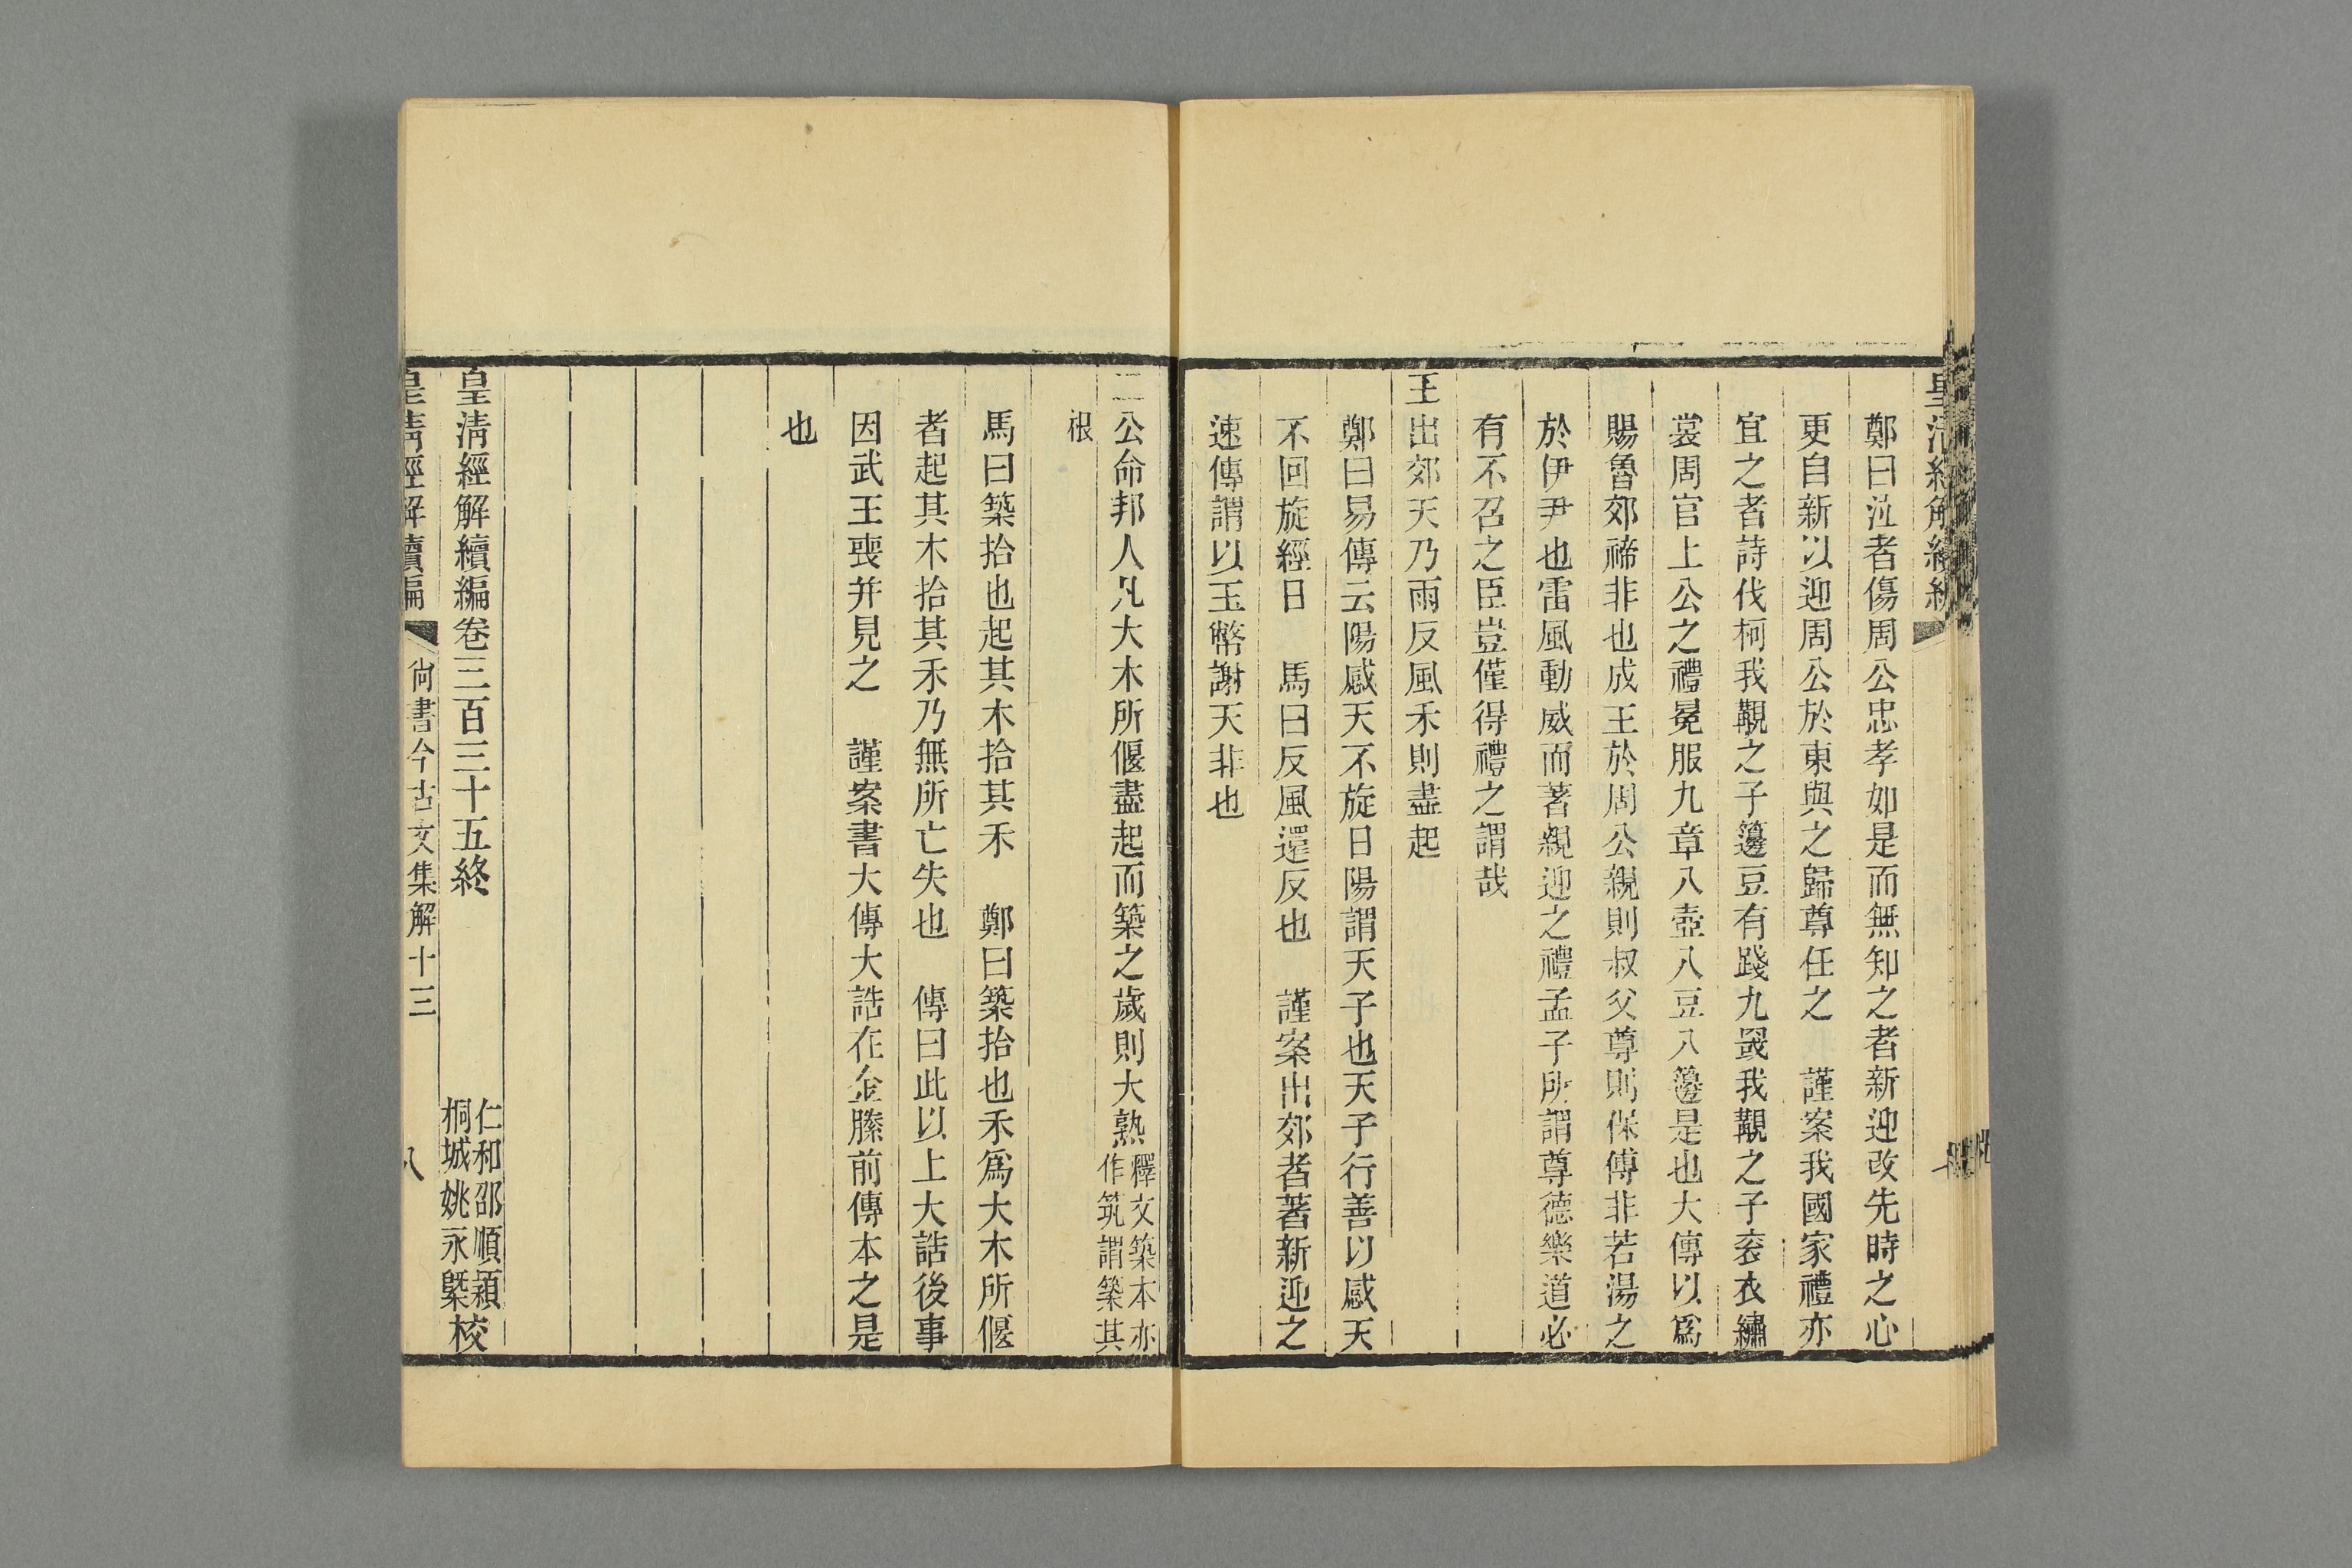 鄭曰泣者傷周公忠孝如是而無知之者新迎改先時之心
更自新以迎周公於東與之歸尊任之　謹案我國家禮亦
宜之者詩伐柯我覯之子籩豆有踐九罭我覯之子袞衣繡
裳周官上公之禮冕服九章八壺八豆八籩是也大傳以爲
賜魯郊禘非也成王於周公親則叔父尊則保傅非若湯之
於伊尹也雷風動威而著親迎之禮孟子所謂尊德樂道必
有不召之臣豈僅得禮之謂哉
王出郊天乃雨反風禾則盡起
鄭曰易傳云陽感天不旋日陽謂天子也天子行善以感天
不回旋經日　馬曰反風還反也　謹案出郊者著新迎之
速傳謂以玉幣謝天非也
二公命邦人凡大木所偃盡起而築之歲則大熟釋文築本亦
作筑謂築其
根
馬曰築拾也起其木拾其禾　鄭曰築拾也禾爲大木所偃
者起其木拾其禾乃無所亡失也　傳曰此以上大誥後事
因武王喪并見之　謹案書大傳大誥在金縢前傳本之是
也
皇清經解續編卷三百三十五終
仁和邵順穎
桐城姚永㮣校
皇清經解續編　尚書今古文集解十三　八